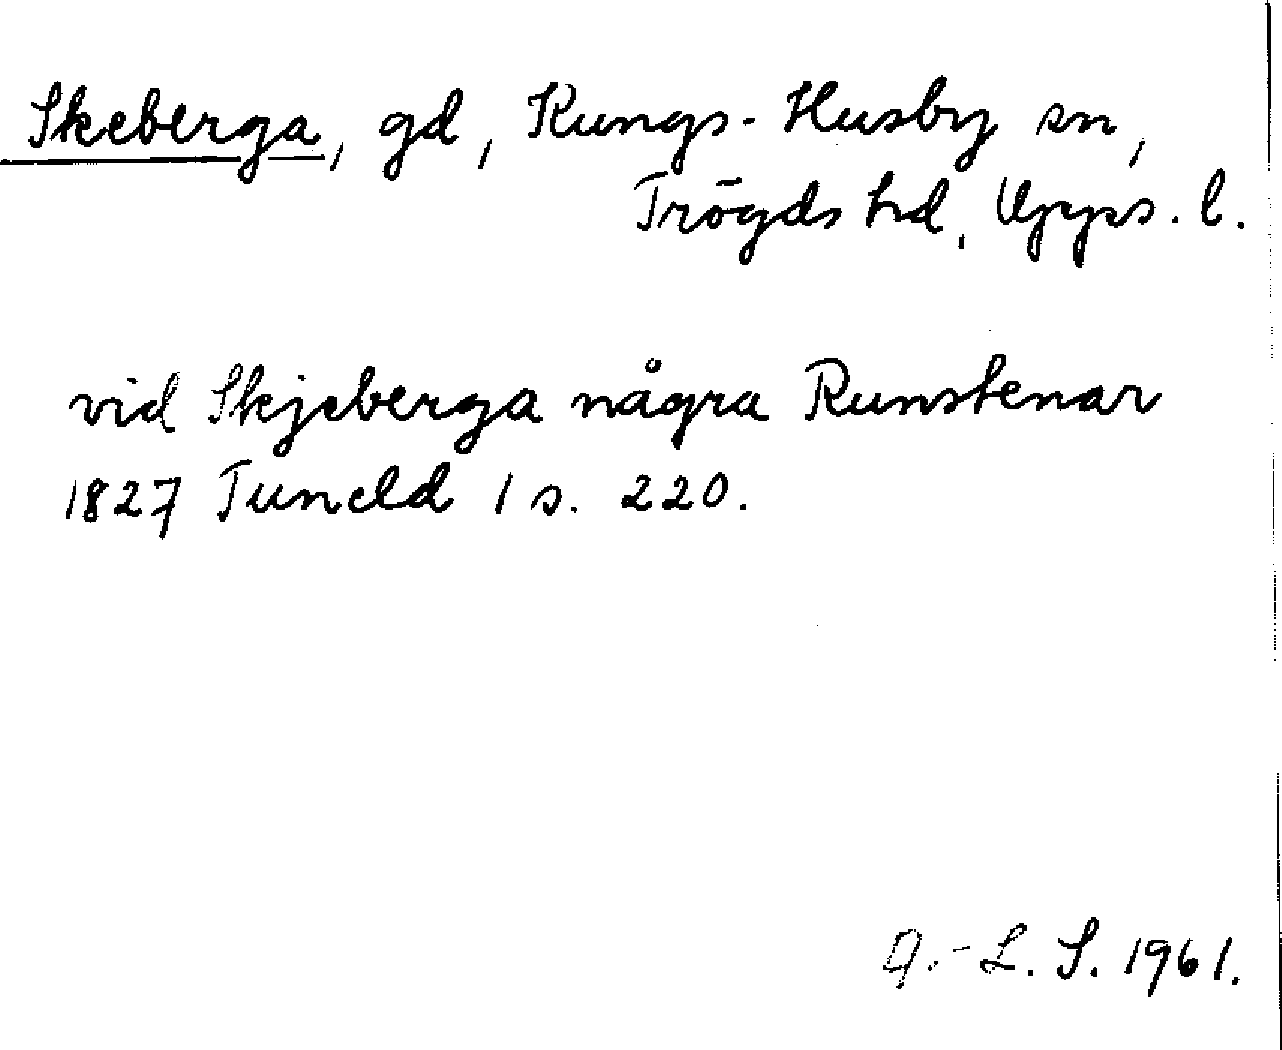 Skeberga, gd, Kungs-Husby sn,
Trögds hd, Upps. l.
vid Skjeberga några Runstenar
1827 Tuneld 1 s. 220.
A.-L. S. 1961.